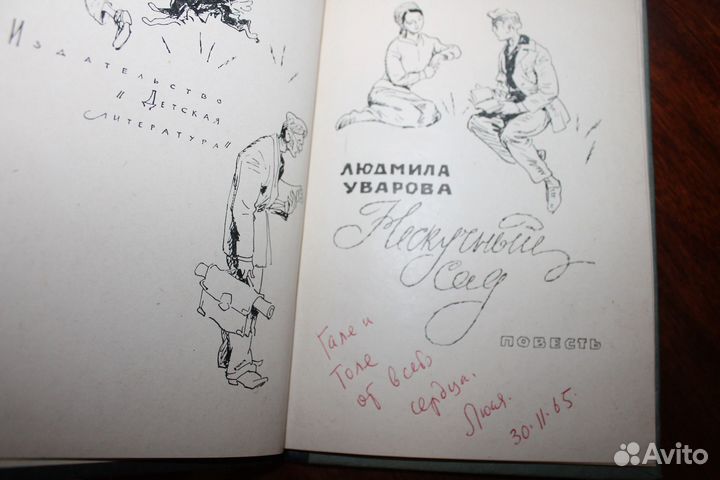 Издательство
"Детская
литература"
ЛЮДМИЛА
УВАРОВА
Нескучный
сад
ПОВЕСТЬ
Гале и
Толе
от всего
сердца.
Люся.
30.11.65.
Avito